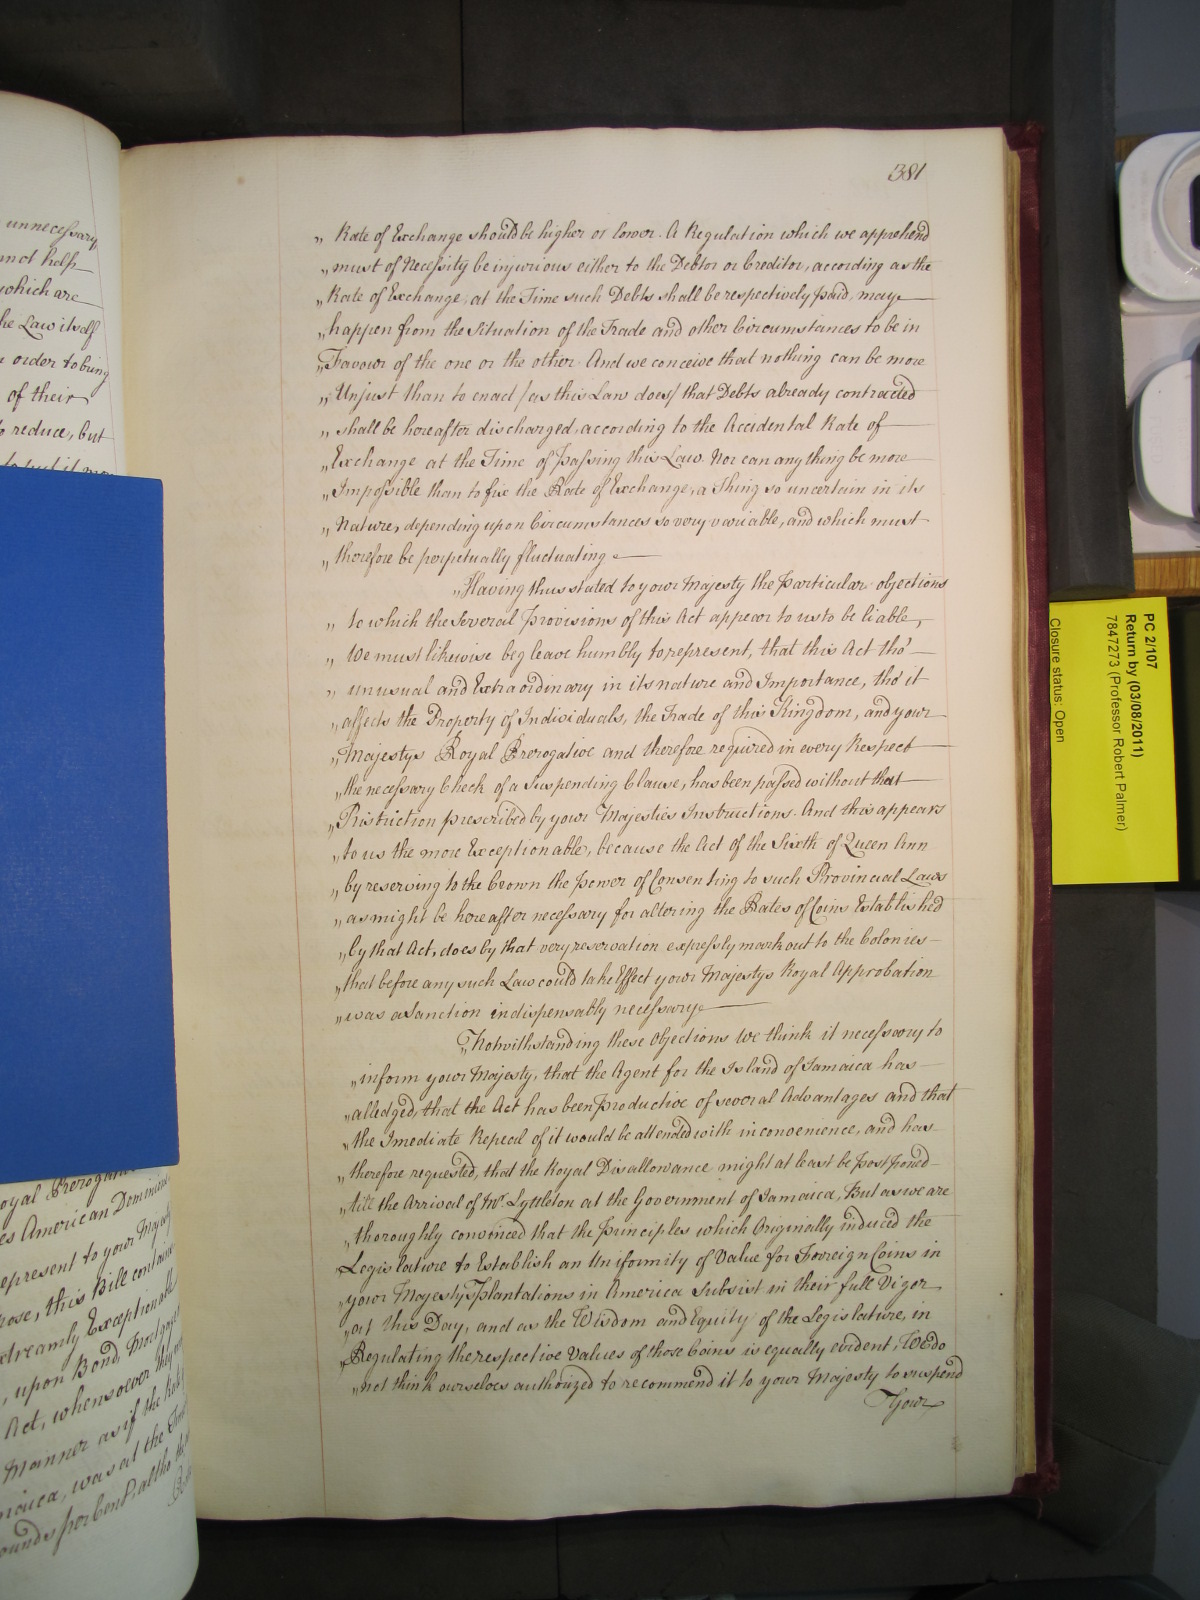 unnecessary
not help
which are
the Law itself
order to bring
of their
to reduce, but
Royal Prerogative
American Dominions
represent to your Majesty
this Bill contains
Extreamly Exceptionable
upon Bond, Mortgage
Act, whensoever they
Manner as if the Rate
was at the Time
pounds per Cent, altho' the
Rate
381
„ Rate of Exchange should be higher or lower. A Regulation which we apprehend
„ must of Necessity be injurious either to the Debtor or Creditor, according as the
„ Rate of Exchange, at the Time such Debts shall be respectively paid, may
„ happen from the Situation of the Trade and other Circumstances to be in
„ Favour of the one or the other. And we conceive that nothing can be more
„ Unjust than to enact /as this Law does/ that Debts already contracted
„ shall be hereafter discharged, according to the Accidental Rate of
„ Exchange at the Time of passing this Law. Nor can any thing be more
„ Impossible than to fix the Rate of Exchange, a Thing so uncertain in its
„ Nature, depending upon Circumstances so very variable, and which must
„ therefore be perpetually fluctuating.
„ Having thus stated to your Majesty the particular objections
„ to which the several Provisions of this Act appear to us to be liable,
„ We must likewise beg leave humbly to represent, that this Act tho'
„ unusual and Extraordinary in its nature and Importance, tho' it
„ affects the Property of Individuals, the Trade of this Kingdom, and your
„ Majestys Royal Prerogative and therefore required in every Respect
„ the necessary Check of a Suspending Clause, has been passed without that
„ Ristriction prescribed by your Majesties Instructions. And this appears
„ to us the more Exceptionable, because the Act of the Sixth of Queen Ann
„ by reserving to the Crown the power of Consenting to such Provincial Laws
„ as might be hereafter necessary for altering the Rates of Coins Established
„ by that Act, does by that very reservation expressly mark out to the Colonies
„ that before any such Law could take Effect your Majestys Royal Approbation
„ was a Sanction indispensably necessary.
„ Notwithstanding these Objections We think it necessary to
„ inform your Majesty, that the Agent for the Island of Jamaica has
„ alledged, that the Act has been productive of several Advantages and that
„ the Imediate Repeal of it would be attended with inconvenience, and has
„ therefore requested, that the Royal Disallowance might at least be postponed
„ till the Arrival of Mr. Lyttleton at the Government of Jamaica, But as we are
„ thoroughly convinced that the Principles which Originally induced the
„ Legislature to Establish an Uniformity of Value for Forreign Coins in
„ your Majestys Plantations in America Subsist in their full Vigor
„ at this Day, and as the Wisdom and Equity of the Legislature, in
„ Regulating the respective Values of those Coins is equally evident, We do
„ not think ourselves authorized to recommend it to your Majesty to suspend
Your
PC 2/107
Return by (03/08/2011)
7847273 (Professor Robert Palmer)
Closure status: Open